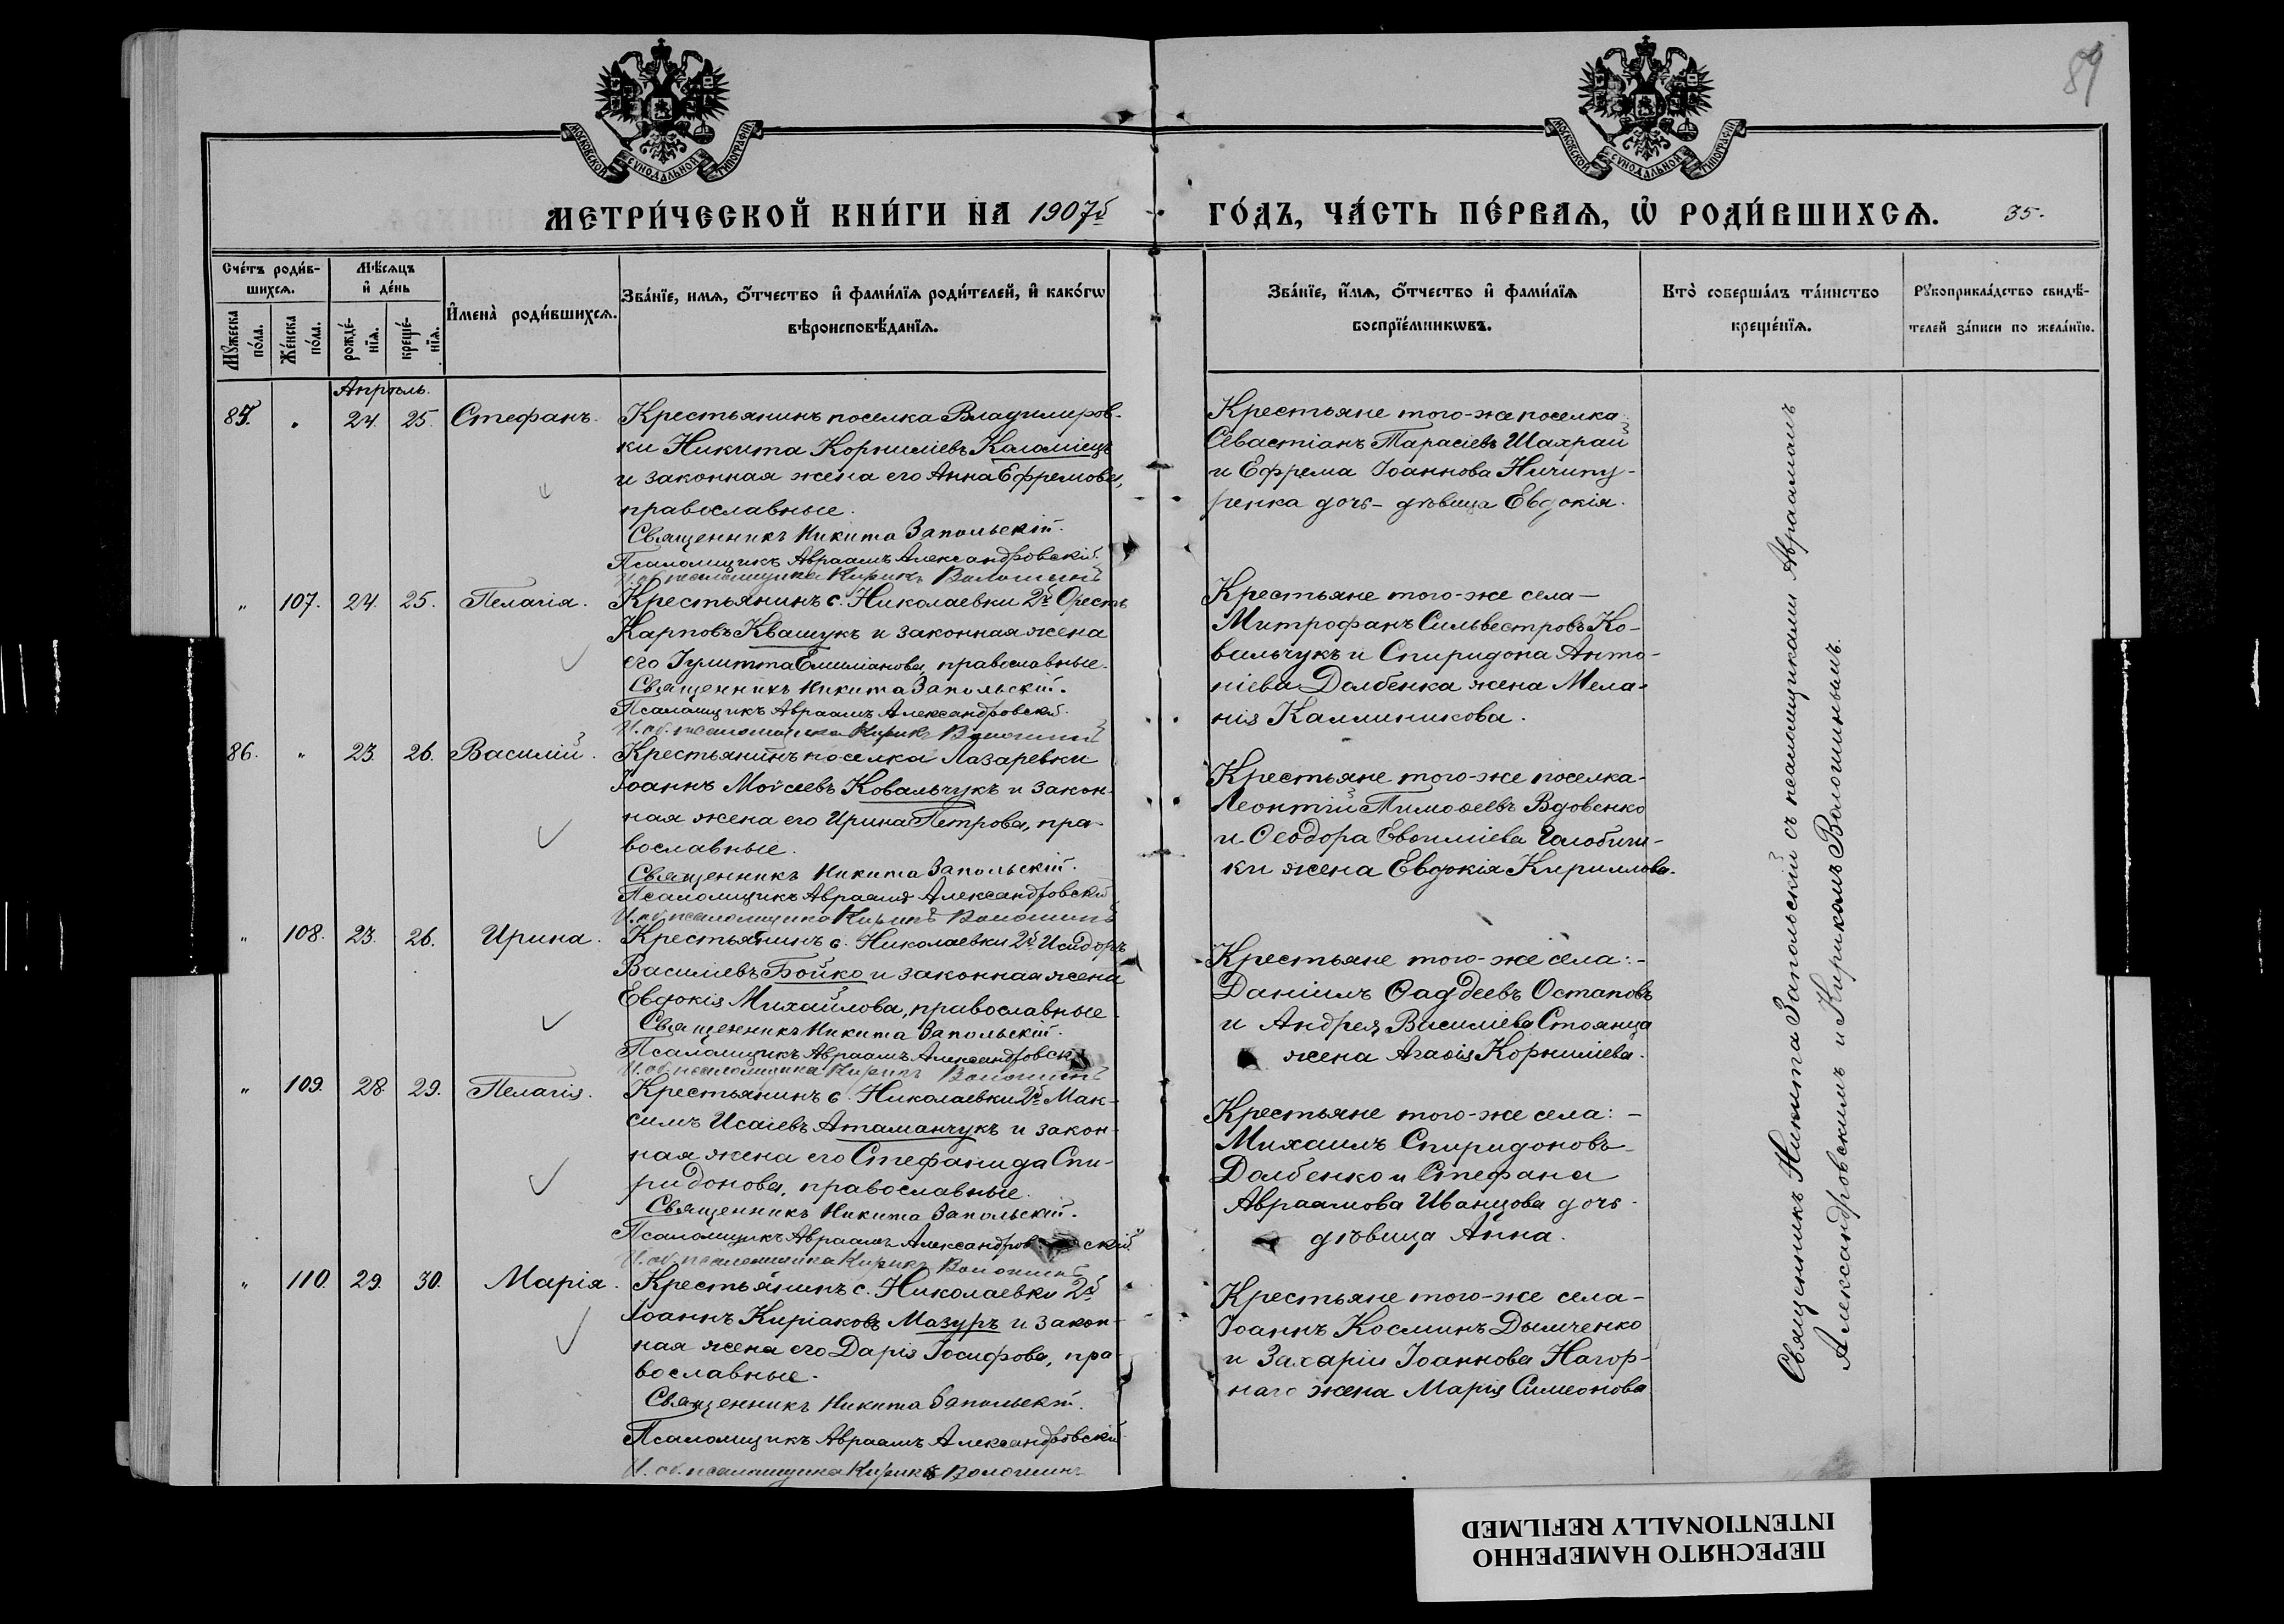 89
МОСКОВСКОЙ СѴНОДАЛЬНОЙ ТИПОГРАФІИ
МОСКОВСКОЙ СѴНОДАЛЬНОЙ ТИПОГРАФІИ
МЕТРИ́ЧЕСКОЙ КНИ́ГИ НА 1907й
ГО́ДЪ, ЧА́СТЬ ПЕ́РВАѦ, Ѡ҆ РОДИ́ВШИХСѦ. 35.
Сче́тъ роди́в-
шихсѧ.
Мꙋ́жеска по́ла.
Же́нска по́ла.
Мѣ́сѧцъ
и҆ де́нь
рожде́-
нїѧ.
креще́-
нїѧ.
И҆мена̀ роди́вшихсѧ.
Зва́нїе, имѧ, ѻ҆́тчество и҆ фами́лїѧ роди́телей, и҆ како́гѡ
вѣроисповѣ́данїѧ.
Зва́нїе, и҆́мѧ, ѻ҆́тчество и҆ фами́лїѧ
воспрїе́мникѡвъ.
Кто̀ соверша́лъ та́инство
креще́нїѧ.
Рꙋкоприкла́дство свидѣ́-
телей за́писи по жела́нїю.
Апрѣль.
85. " 24. 25. Стефанъ.
Крестьянинъ поселка Владимиров-
ки Никита Корниліевъ Каломіецъ
и законная жена его Анна Ефремова,
православные.
Священникъ Никита Запольскій.
Псаломщикъ Авраамъ Александровскій.
И. об. псаломщика Кирикъ Волошинъ
Крестьяне того-же поселка:
Севастіанъ Тарасіевъ Шахрай
и Ефрема Іоаннова Ничипу-
ренка дочь - дѣвица Евдокія.
" 107. 24. 25. Пелагія.
Крестьянинъ с. Николаевки 2й Орестъ
Карповъ Квашукъ и законная жена
его Іулитта Емиліанова, православные.
Священникъ Никита Запольскій.
Псаломщикъ Авраамъ Александровскій.
И. об. псаломщика Кирикъ Волошинъ
Крестьяне того-же села -
Митрофанъ Сильвестровъ Ко-
вальчукъ и Спиридона Анто-
ніева Долбенка жена Мела-
нія Каллиникова.
86. " 23. 26. Василій.
Крестьянинъ поселка Лазаревки
Іоаннъ Моѵсеевъ Ковальчукъ и закон-
ная жена его Ирина Петрова, пра-
вославные.
Священникъ Никита Запольскій.
Псаломщикъ Авраамъ Александровскій
И. об. псаломщика Кирикъ Волошинъ
Крестьяне того-же поселка -
Леонтій Тимоѳеевъ Вдовенко
и Ѳеодора Евѳиміева
ки жена Евдокія Кириллова.
" 108. 23. 26. Ирина.
Крестьянинъ с. Николаевки 2й Исидоръ
Василіевъ Бойко и законная жена
Евдокія Михайлова, православные.
Священникъ Никита Запольскій.
Псаломщикъ Авраамъ Александровск
И. об. псаломщика Кирикъ Волошинъ
Крестьяне того-же села: -
Даніилъ Ѳаддеевъ Остаповъ
и Андрея Василіева Стоянца
жена Агаѳія Корниліева.
" 109. 28. 29. Пелагія.
Крестьянинъ с. Николаевки 2й Мак-
симъ Исаіевъ Атаманчукъ и закон-
ная жена его Стефанида Спи-
ридонова, православные.
Священникъ Никита Запольскій.
Псаломщикъ Авраамъ Александров скій.
И. об. псаломщика Кирикъ Волошинъ
Крестьяне того-же села: -
Михаилъ Спиридоновъ
Долбенко и Стефана
Авраамова Иванцова дочь -
дѣвица Анна.
" 110. 29. 30. Марія.
Крестьянинъ с. Николаевки 2й
Іоаннъ Киріаковъ Мазуръ и закон-
ная жена его Дарія Іосифова, пра-
вославные.
Священникъ Никита Запольскій.
Псаломщикъ Авраамъ Александровскій
И. об. псаломщика Кирикъ Волошинъ
Крестьяне того-же села -
Іоаннъ Косминъ Дымченко
и Захаріи Іоаннова Нагор-
наго жена Марія Симеонова
Священникъ Никита Запольскій съ псаломщиками Авраамомъ
Александровскимъ и Кирикомъ Волошинымъ.
ПЕРЕСНЯТО НАМЕРЕННО
INTENTIONALLY REFILMED